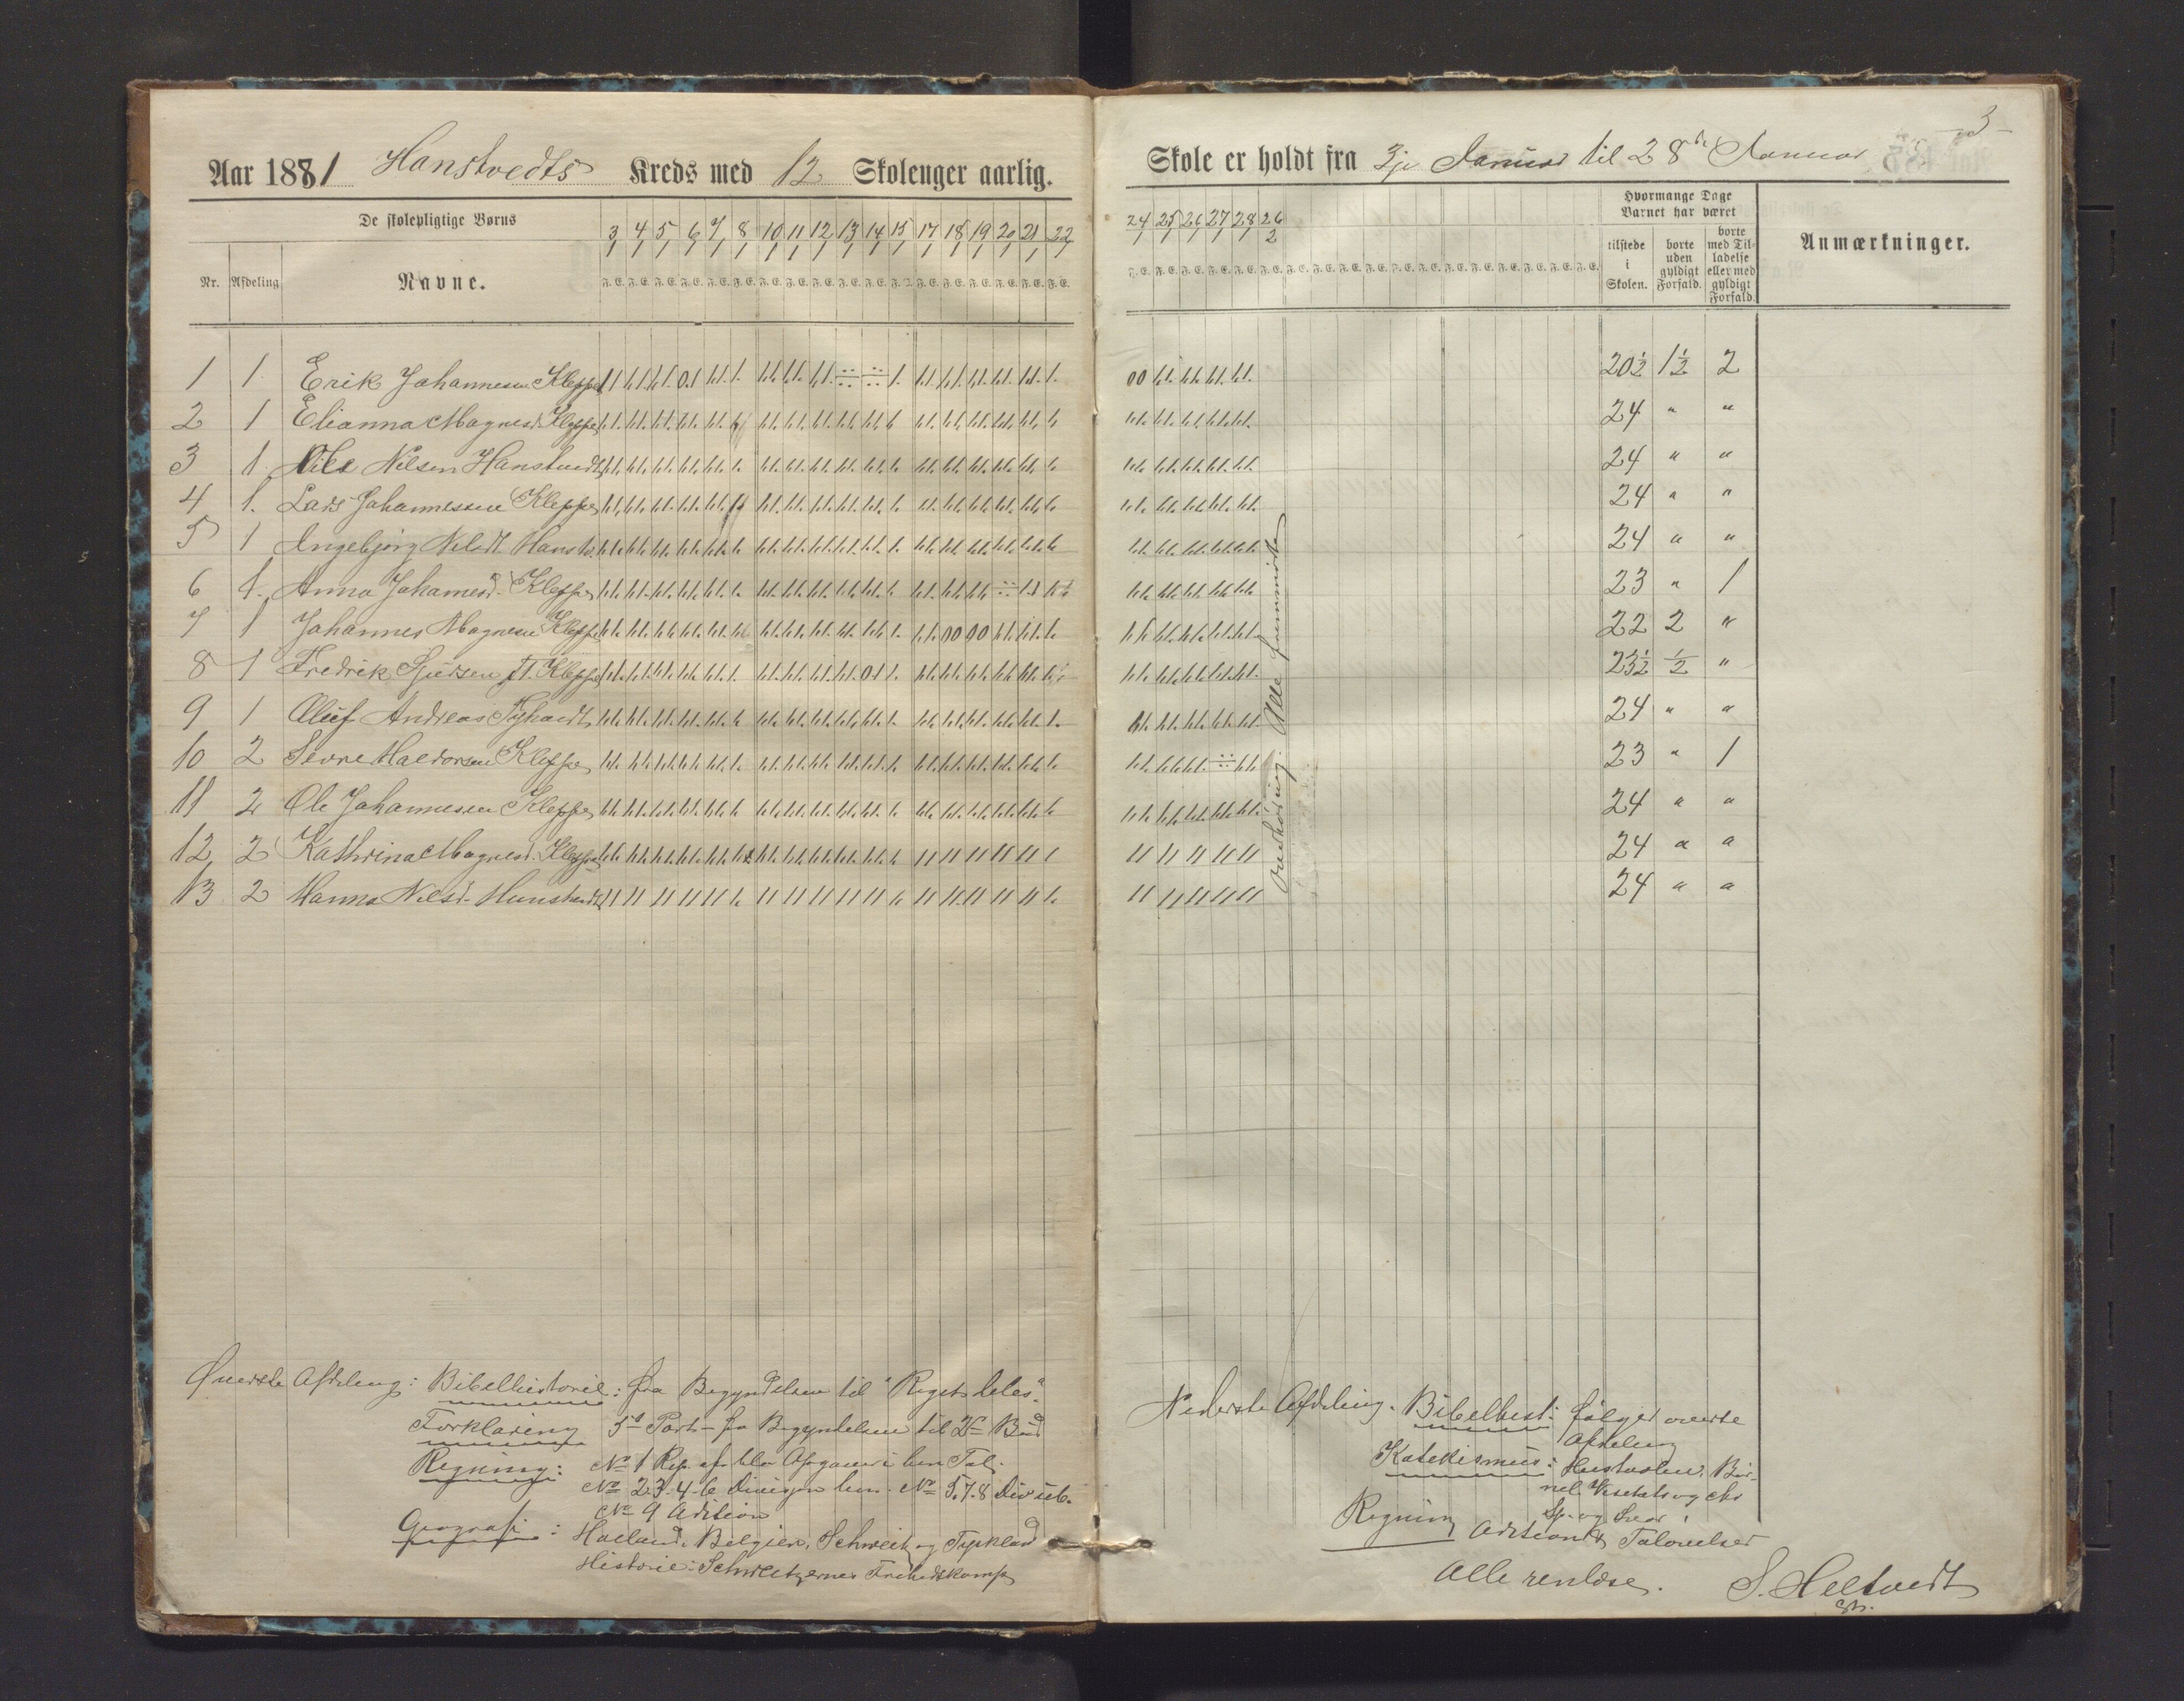 Aar 1881 Hanstvedts Kreds med 12 Skoleuger aarlig.
De skolepligtige Børns
Nr. Afdeling Navne.
3/1 4/1 5/1 6/1 7/1 8/1 10/1 11/1 12/1 13/1 14/1 15/1 17/1 18/1 19/1 20/1 21/1 22/1
F. E. F. E. F. E. F. E. F. E. F. E. F. E. F. E. F. E. F. E. F. E. F. E. F. E. F. E. F. E. F. E. F. E. F. E.
1 1 Erik Johannesen Kleppe
2 1 Elianna Magnesd. Kleppe
3 1 Nils Nilsen Hanstvedt
4 1. Lars Johannessen Kleppe
5 1 Ingebjørg Nilsdt. Hanstv.
6 1. Anna Johannesd. Kleppe
7 1 Johannes Magnesen Kleppe
8 1 Fredrik Sjursen Kleppe
9 1 Oluf Andreas
10 2 Sevre Haldorsen Kleppe
11 2 Ole Johannesen Kleppe
12 2 Kathrina Magnesd. Kleppe
13 2 Hanna Nilsd. Hanstvedt
Øverste Afdeling: Bibelhistorie: fra Begyndelsen til "Rigets Deles".
Forklaring 5te Part fra Begyndelsen til 2det Bud
Regning: No 1 Rep. af Opgaver i hen Tal.
No 2.3.4.6 Division hen. No 5.7.8 Div ub.
No 9 Adition
Geografi: Holland, Belgien, Schweitz og Tyskland
Historie: Schweitzernes Frihedskamp
3
Skole er holdt fra 3je Januar til 28de Januar
24/1 25/1 26/1 27/1 28/1 26/2
F. E. F. E. F. E. F. E. F. E. F. E. F. E. F. E. F. E. F. E. F. E. F. E. F. E. F. E. F. E. F. E. F. E. F. E.
Hvormange Dage
Barnet har været
tilstede i Skolen.
borte uden gyldigt Forfald.
borte med Tilladelse eller med gyldigt Forfald.
Anmærkninger.
20½ 1½ 2
24 " "
24 " "
24 " "
24 " "
23 " 1
22 2 "
23½ ½ "
24 " "
23 " 1
24 " "
24 " "
24 " "
Overhøring. Alle fremmødte
Nederste Afdeling. Bibelhist: følger øverste
Afdeling
Katekismus: Hustavlen, Bør-
nel.
Sp. og Svar
Regning Adition & Taløvelser
Alle renlæse. S. Heltvedt